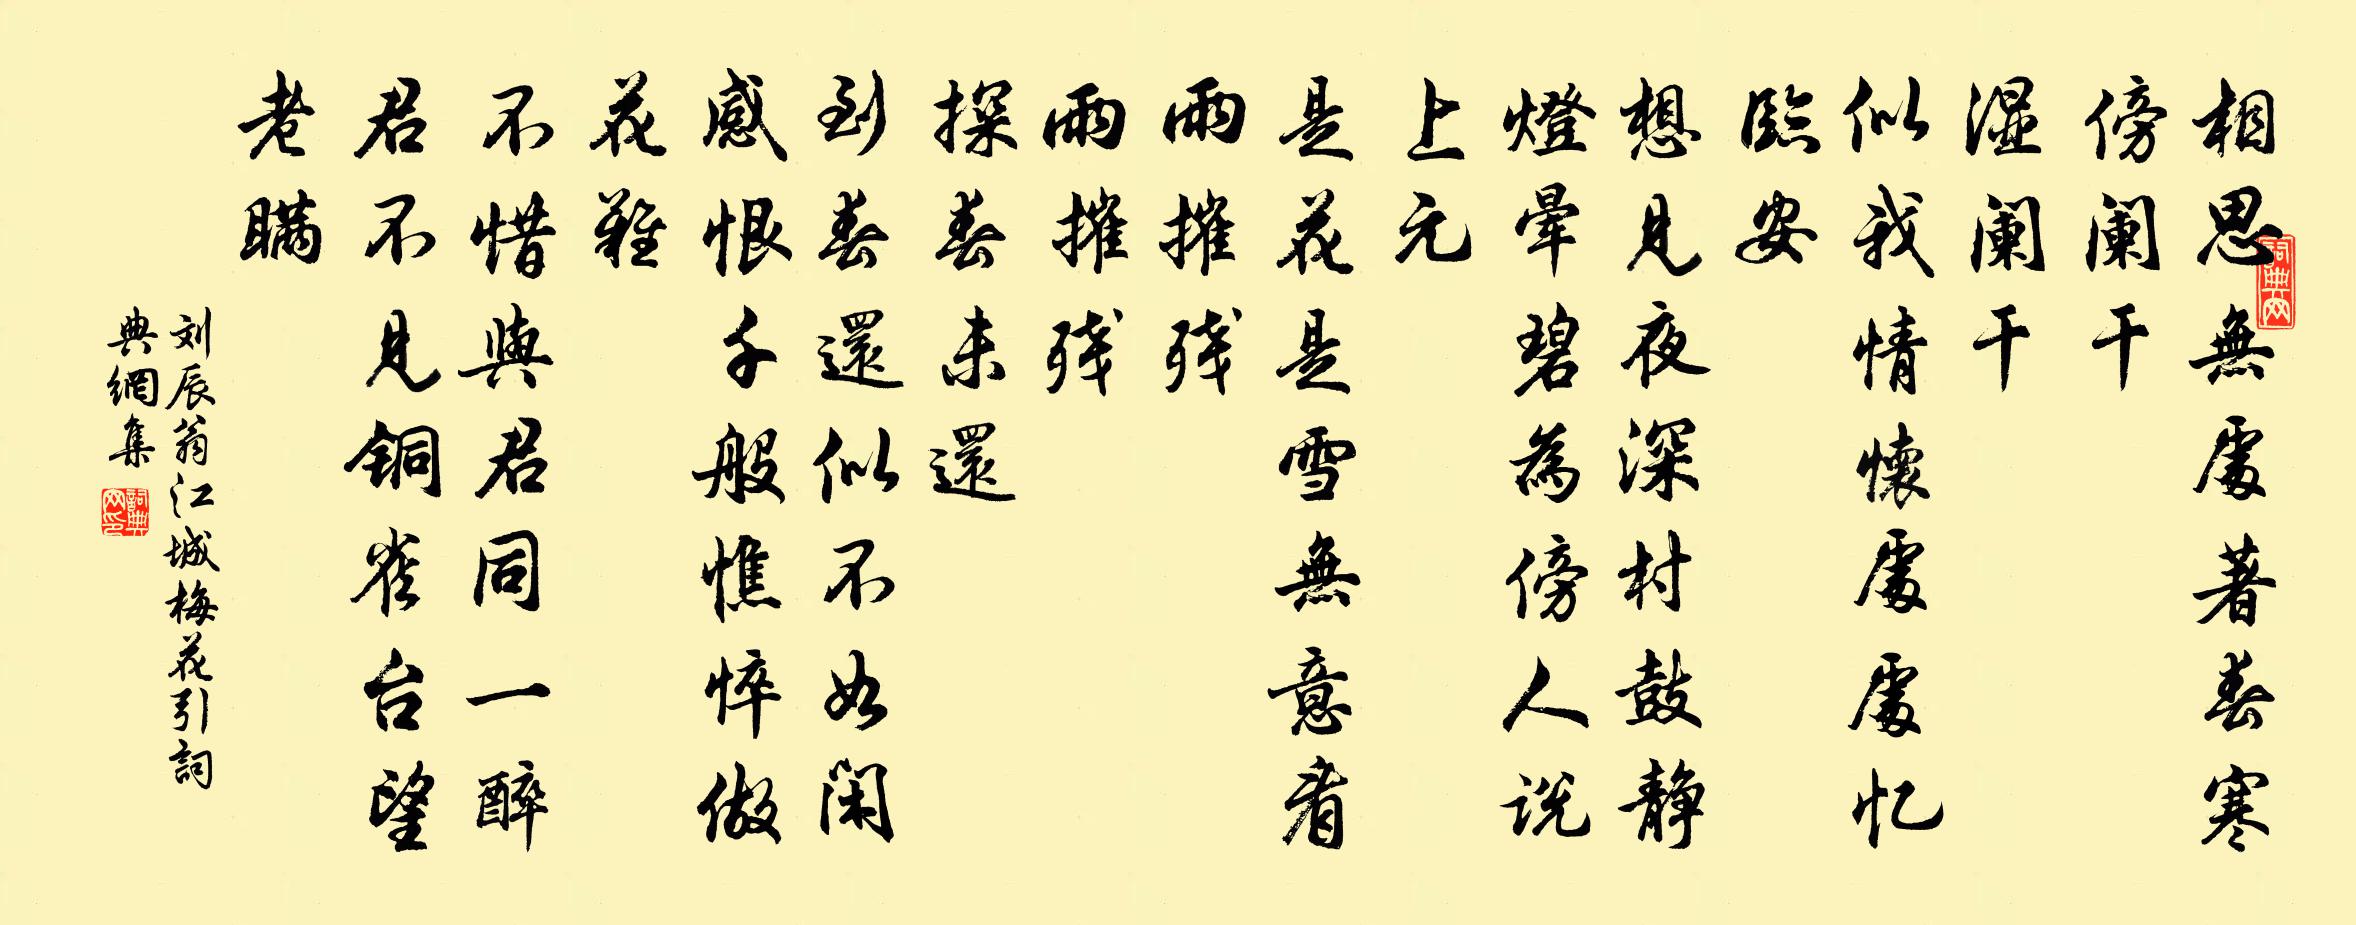 相思無處著春寒
傍阑干
湿阑干
似我情懷處處忆
臨安
想見夜深村鼓静
燈暈碧為傍人说
上元
是花是雪無意看
雨摧残
雨摧残
探春未還
到春還似不如闲
感恨千般憔悴做
花難
不惜與君同一醉
君不見铜雀台望
老瞒
刘辰翁江城梅花引詞
典網集